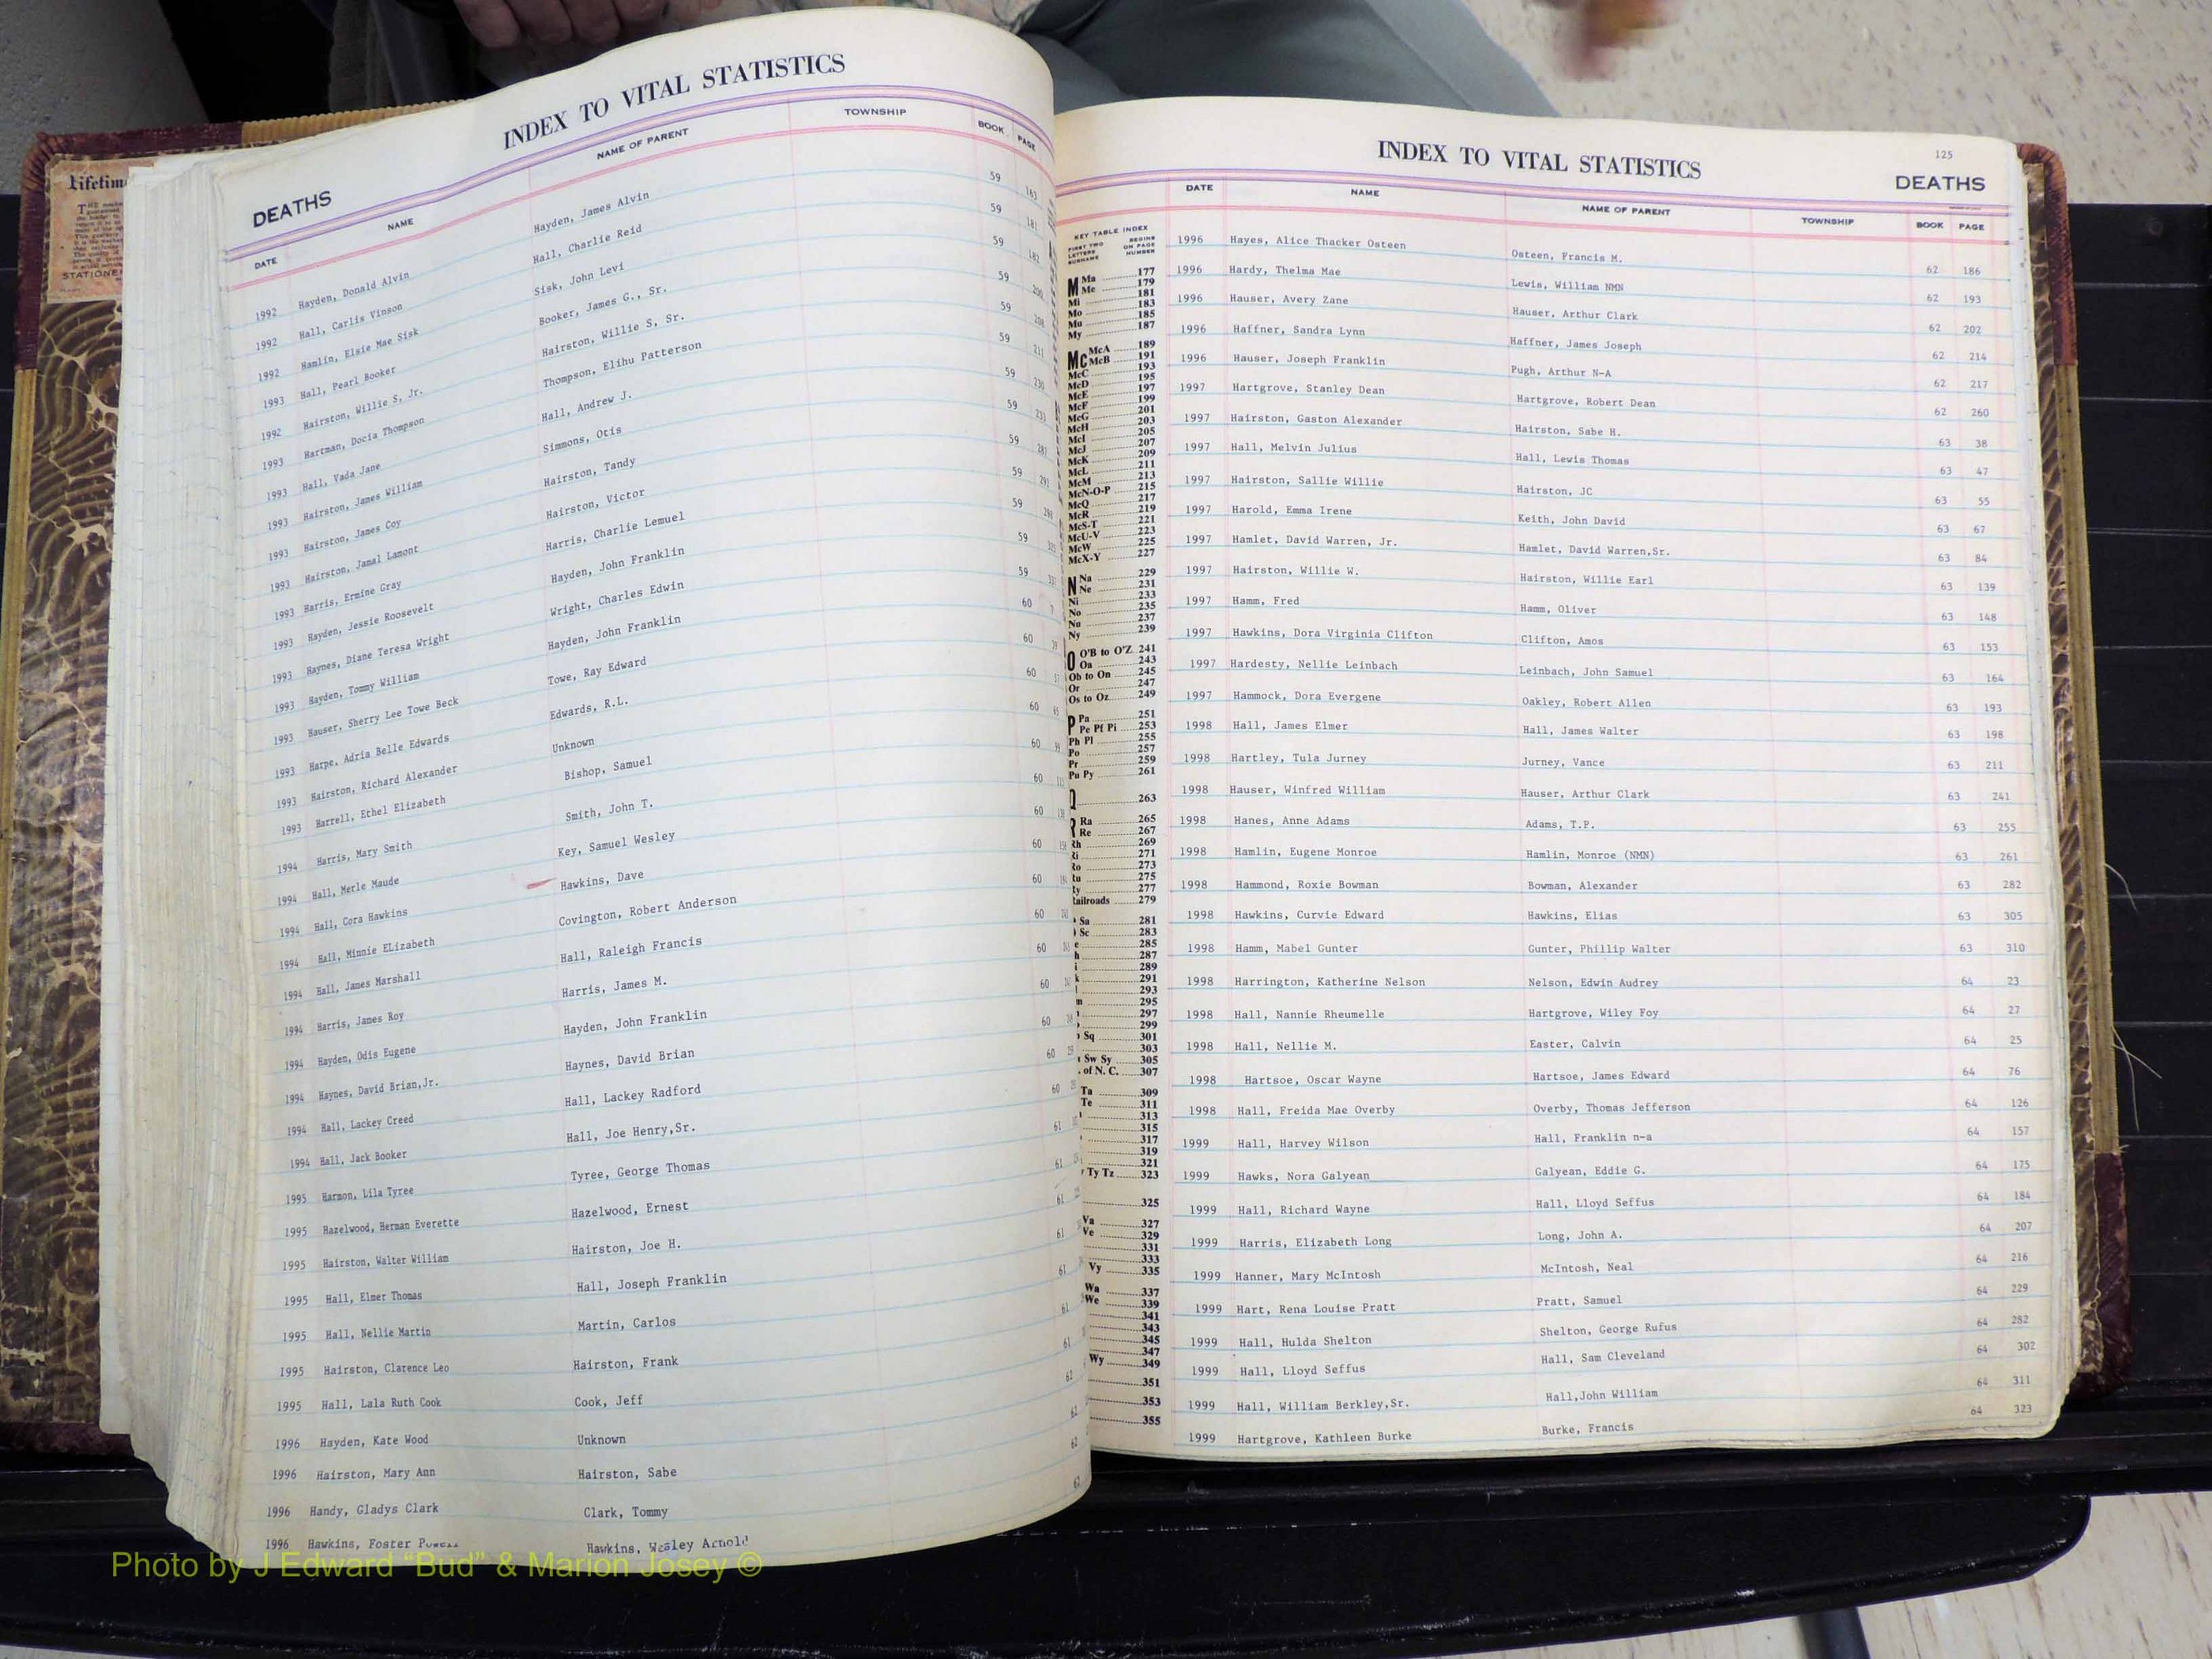 Lifetim
STATIONE
INDEX TO VITAL STATISTICS
DEATHS
DATE NAME NAME OF PARENT TOWNSHIP BOOK PAGE
1992 Hayden, Donald Alvin Hayden, James Alvin 59 163
1992 Hall, Carlis Vinson Hall, Charlie Reid 59 181
1992 Hamlin, Elsie Mae Sisk Sisk, John Levi 59 182
1993 Hall, Pearl Booker Booker, James G., Sr. 59
1992 Hairston, Willie S, Jr. Hairston, Willie S, Sr. 59
1993 Hartman, Docia Thompson Thompson, Elihu Patterson 59 211
1993 Hall, Vada Jane Hall, Andrew J. 59
1993 Hairston, James William Simmons, Otis 59
1993 Hairston, James Coy Hairston, Tandy 59
1993 Hairston, Jamal Lamont Hairston, Victor 59
1993 Harris, Ermine Gray Harris, Charlie Lemuel 59
1993 Hayden, Jessie Roosevelt Hayden, John Franklin 59
1993 Haynes, Diane Teresa Wright Wright, Charles Edwin 59
1993 Hayden, Tommy William Hayden, John Franklin 60
1993 Hauser, Sherry Lee Towe Beck Towe, Ray Edward 60
1993 Harpe, Adria Belle Edwards Edwards, R.L. 60
1993 Hairston, Richard Alexander Unknown 60
1993 Harrell, Ethel Elizabeth Bishop, Samuel 60
1994 Harris, Mary Smith Smith, John T. 60
1994 Hall, Merle Maude Key, Samuel Wesley 60
1994 Hall, Cora Hawkins Hawkins, Dave 60
1994 Hall, Minnie ELizabeth Covington, Robert Anderson 60
1994 Hall, James Marshall Hall, Raleigh Francis 60
1994 Harris, James Roy Harris, James M. 60
1994 Hayden, Odis Eugene Hayden, John Franklin 60
1994 Haynes, David Brian,Jr. Haynes, David Brian 60
1994 Hall, Lackey Creed Hall, Lackey Radford 60
1994 Hall, Jack Booker Hall, Joe Henry,Sr. 60
1995 Harmon, Lila Tyree Tyree, George Thomas 61
1995 Hazelwood, Herman Everette Hazelwood, Ernest 61
1995 Hairston, Walter William Hairston, Joe H. 61
1995 Hall, Elmer Thomas Hall, Joseph Franklin 61
1995 Hall, Nellie Martin Martin, Carlos 61
1995 Hairston, Clarence Leo Hairston, Frank 61
1995 Hall, Lala Ruth Cook Cook, Jeff 61
1996 Hayden, Kate Wood Unknown 62
1996 Hairston, Mary Ann Hairston, Sabe 62
1996 Handy, Gladys Clark Clark, Tommy 62
1996 Hawkins, Foster Hawkins, Wesley Arnold 62
Photo by J Edward “Bud” & Marion Josey ©
KEY TABLE INDEX
FIRST TWO LETTERS SURNAME BEGINS ON PAGE NUMBER
M Ma 177
Me 179
Mi 181
Mo 183
Mu 185
My 187
Mc McA 189
McB 191
McC 193
McD 195
McE 197
McF 199
McG 201
McH 203
McI 205
McJ 207
McK 209
McL 211
McM 213
McN-O-P 215
McQ 217
McR 219
McS-T 221
McU-V 223
McW 225
McX-Y 227
N Na 229
Ne 231
Ni 233
No 235
Nu 237
Ny 239
O O'B to O'Z 241
Oa 243
Ob to On 245
Or 247
Os to Oz 249
P Pa 251
Pe Pf Pi 253
Ph Pl 255
Po 257
Pr 259
Pu Py 261
263
Ra 265
Re 267
269
271
273
275
277
279
Sa 281
Sc 283
285
287
289
291
293
295
297
299
Sq 301
303
Sw Sy 305
of N. C. 307
Ta 309
Te 311
313
315
317
319
321
Ty Tz 323
325
Va 327
Ve 329
331
333
Vy 335
Wa 337
We 339
341
343
345
347
Wy 349
351
353
355
INDEX TO VITAL STATISTICS
125
DEATHS
DATE NAME NAME OF PARENT TOWNSHIP BOOK PAGE
1996 Hayes, Alice Thacker Osteen Osteen, Francis M. 62 186
1996 Hardy, Thelma Mae Lewis, William NMN 62 193
1996 Hauser, Avery Zane Hauser, Arthur Clark 62 202
1996 Haffner, Sandra Lynn Haffner, James Joseph 62 214
1996 Hauser, Joseph Franklin Pugh, Arthur N-A 62 217
1997 Hartgrove, Stanley Dean Hartgrove, Robert Dean 62 260
1997 Hairston, Gaston Alexander Hairston, Sabe H. 63 38
1997 Hall, Melvin Julius Hall, Lewis Thomas 63 47
1997 Hairston, Sallie Willie Hairston, JC 63 55
1997 Harold, Emma Irene Keith, John David 63 67
1997 Hamlet, David Warren, Jr. Hamlet, David Warren,Sr. 63 84
1997 Hairston, Willie W. Hairston, Willie Earl 63 139
1997 Hamm, Fred Hamm, Oliver 63 148
1997 Hawkins, Dora Virginia Clifton Clifton, Amos 63 153
1997 Hardesty, Nellie Leinbach Leinbach, John Samuel 63 164
1997 Hammock, Dora Evergene Oakley, Robert Allen 63 193
1998 Hall, James Elmer Hall, James Walter 63 198
1998 Hartley, Tula Jurney Jurney, Vance 63 211
1998 Hauser, Winfred William Hauser, Arthur Clark 63 241
1998 Hanes, Anne Adams Adams, T.P. 63 255
1998 Hamlin, Eugene Monroe Hamlin, Monroe (NMN) 63 261
1998 Hammond, Roxie Bowman Bowman, Alexander 63 282
1998 Hawkins, Curvie Edward Hawkins, Elias 63 305
1998 Hamm, Mabel Gunter Gunter, Phillip Walter 63 310
1998 Harrington, Katherine Nelson Nelson, Edwin Audrey 64 23
1998 Hall, Nannie Rheumelle Hartgrove, Wiley Foy 64 27
1998 Hall, Nellie M. Easter, Calvin 64 25
1998 Hartsoe, Oscar Wayne Hartsoe, James Edward 64 76
1998 Hall, Freida Mae Overby Overby, Thomas Jefferson 64 126
1999 Hall, Harvey Wilson Hall, Franklin n-a 64 157
1999 Hawks, Nora Galyean Galyean, Eddie G. 64 175
1999 Hall, Richard Wayne Hall, Lloyd Seffus 64 184
1999 Harris, Elizabeth Long Long, John A. 64 207
1999 Hanner, Mary McIntosh McIntosh, Neal 64 216
1999 Hart, Rena Louise Pratt Pratt, Samuel 64 229
1999 Hall, Hulda Shelton Shelton, George Rufus 64 282
1999 Hall, Lloyd Seffus Hall, Sam Cleveland 64 302
1999 Hall, William Berkley,Sr. Hall,John William 64 311
1999 Hartgrove, Kathleen Burke Burke, Francis 64 323